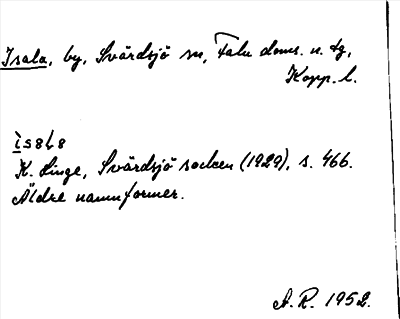 Isala, by, Svärdsjö sn, Falu doms. n. tg,
Kopp. l.
K. Linge, Svärdsjö socken (1929), s. 466.
Äldre namnformer.
A. R. 1952.